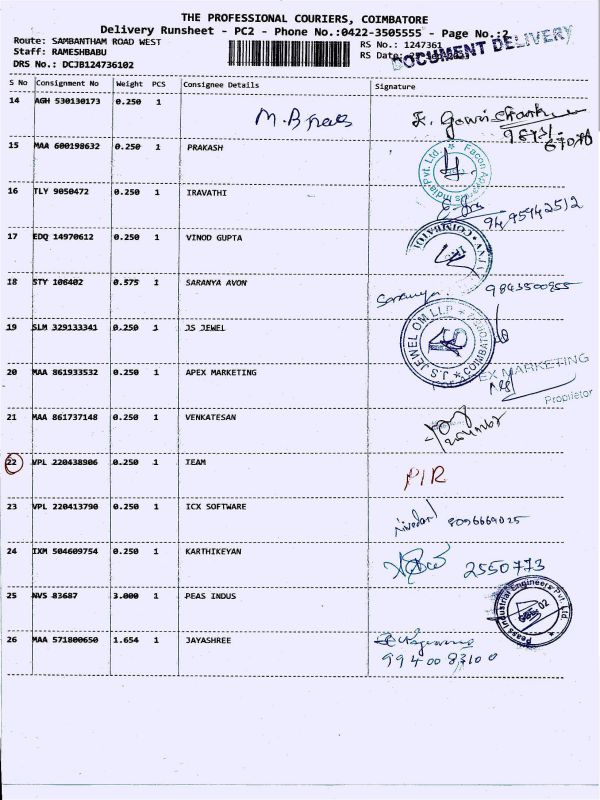 THE PROFESSIONAL COURIERS, COIMBATORE
Delivery Runsheet - PC2 - Phone No.:0422-3505555 - Page No.:2
DOCUMENT DELIVERY
Route: SAMBANTHAM ROAD WEST
RS No.: 1247361
Staff: RAMESHBABU
RS Date:
DRS No.: DCJB124736102
S No Consignment No Weight PCS Consignee Details Signature
14 AGH 530130173 0.250 1
15 MAA 600198632 0.250 1 PRAKASH
16 TLY 9050472 0.250 1 IRAVATHI
9495942512
17 EDQ 14970612 0.250 1 VINOD GUPTA
18 STY 106402 0.575 1 SARANYA AVON Saranya 9843500955
19 SLM 329133341 0.250 1 JS JEWEL J.S. JEWEL OM LLP COIMBATORE
20 MAA 861933532 0.250 1 APEX MARKETING EX MARKETING
Proprietor
21 MAA 861737148 0.250 1 VENKATESAN
22 VPL 220438906 0.250 1 TEAM P/R
23 VPL 220413790 0.250 1 ICX SOFTWARE
24 IXM 504609754 0.250 1 KARTHIKEYAN 2550773
25 NVS 83687 3.000 1 PEAS INDUS Peass Industrial Engineers Pvt. Ltd.
26 MAA 571800650 1.654 1 JAYASHREE
9940083100